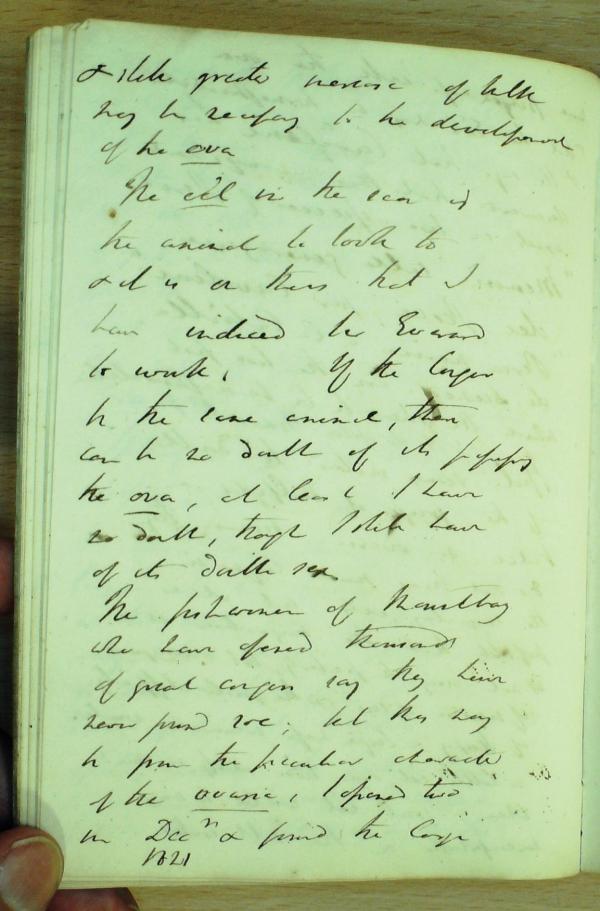 & still greater increase of bulk
may be necessary to the development
of the ova
The eel in the sea is
the animal to look to
& it is on this that I
have induced Sir Everard
to work. If the Conger
be the same animal, there
can be no doubt of its possessing
the ova, at least I have
no doubt, though I still have
of its double sex
The fishwomen of Mountsbay
who have opened thousands
of great congers say they have
never found roe; but this may
be from the peculiar character
of the ovaria, I opened two
in Decr & found the large
1821